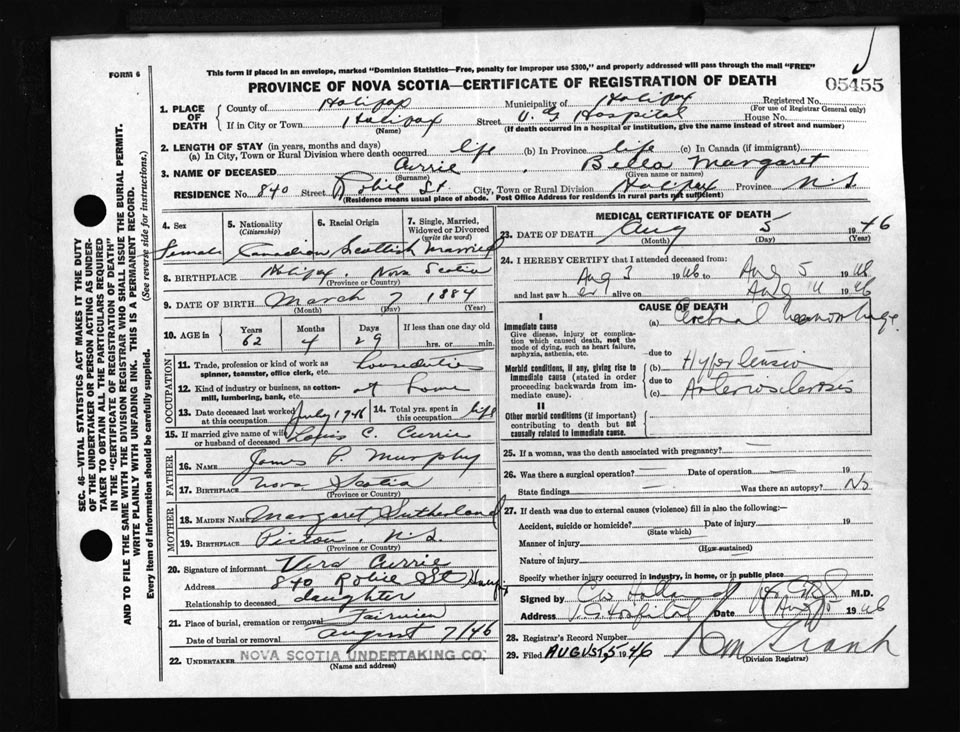 FORM 6
This form if placed in an envelope, marked "Dominion Statistics—Free, penalty for improper use $300," and properly addressed will pass through the mail "FREE"
PROVINCE OF NOVA SCOTIA—CERTIFICATE OF REGISTRATION OF DEATH
05455
1. PLACE OF DEATH
County of Halifax Municipality of Halifax Registered No.
(For use of Registrar General only)
If in City or Town Halifax Street V. G. Hospital House No.
(Name) (If death occurred in a hospital or institution, give the name instead of street and number)
2. LENGTH OF STAY (in years, months and days)
(a) In City, Town or Rural Division where death occurred life (b) In Province life (c) In Canada (if immigrant)
3. NAME OF DECEASED Currie, Bella Margaret
(Surname) (Given name or names)
RESIDENCE No. 840 Street Robie St. City, Town or Rural Division Halifax Province N.S.
(Residence means usual place of abode. Post Office Address for residents in rural parts not sufficient)
4. Sex 5. Nationality (Citizenship) 6. Racial Origin 7. Single, Married, Widowed or Divorced (write the word)
Female Canadian Scottish Married
8. BIRTHPLACE Halifax, Nova Scotia
(Province or Country)
9. DATE OF BIRTH March 7 1884
(Month) (Day) (Year)
10. AGE in Years Months Days If less than one day
62 4 29 hrs. or min.
OCCUPATION
11. Trade, profession or kind of work as spinner, teamster, office clerk, etc. Houseduties
12. Kind of industry or business, as cotton-mill, lumbering, bank, etc. at home
13. Date deceased last worked at this occupation July 1946 14. Total yrs. spent in this occupation life
15. If married give name of wife or husband of deceased Louis C. Currie
FATHER
16. NAME James P. Murphy
17. BIRTHPLACE Nova Scotia
(Province or Country)
MOTHER
18. MAIDEN NAME Margaret Sutherland
19. BIRTHPLACE Pictou, N.S.
(Province or Country)
20. Signature of informant Vera Currie
Address 840 Robie St
Relationship to deceased daughter
21. Place of burial, cremation or removal Fairview
Date of burial or removal August 7/46
22. UNDERTAKER NOVA SCOTIA UNDERTAKING CO.
(Name and address)
MEDICAL CERTIFICATE OF DEATH
23. DATE OF DEATH Aug 5 1946
(Month) (Day) (Year)
24. I HEREBY CERTIFY that I attended deceased from
Aug 3 1946 to Aug 5 19
and last saw her alive on Aug 4 1946
CAUSE OF DEATH
I
Immediate cause
Give disease, injury or complication which caused death, not the mode of dying, such as heart failure, asphyxia, asthenia, etc.
(a) Cerebral Hemorrhage
due to
Morbid conditions, if any, giving rise to immediate cause (stated in order proceeding backwards from immediate cause).
(b) Hypertension
due to
(c) Arteriosclerosis
II
Other morbid conditions (if important) contributing to death but not causally related to immediate cause.
25. If a woman, was the death associated with pregnancy?
26. Was there a surgical operation? Date of operation 19
State findings Was there an autopsy? No
27. If death was due to external causes (violence) fill in also the following:—
Accident, suicide or homicide? Date of injury 19
(State which)
Manner of injury
(How sustained)
Nature of injury
Specify whether injury occurred in industry, in home, or in public place
Signed by M.D.
Address V. G. Hospital Date Aug 5 1946
28. Registrar's Record Number
29. Filed AUGUST 5 1946
(Division Registrar)
SEC. 46—VITAL STATISTICS ACT MAKES IT THE DUTY
OF THE UNDERTAKER OR PERSON ACTING AS UNDER-
TAKER TO OBTAIN ALL THE PARTICULARS REQUIRED
IN THE "CERTIFICATE OF REGISTRATION OF DEATH"
AND TO FILE THE SAME WITH THE DIVISION REGISTRAR WHO SHALL ISSUE THE BURIAL PERMIT.
WRITE PLAINLY WITH UNFADING INK. THIS IS A PERMANENT RECORD.
Every item of information should be carefully supplied. (See reverse side for instructions.)